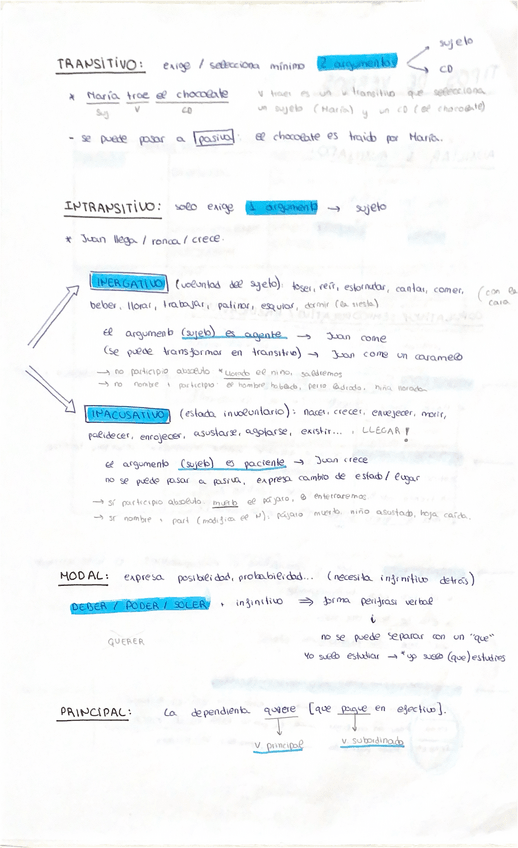 TRANSITIVO: exige / selecciona mínimo 2 argumentos → sujeto
→ CD
* María trae el chocolate
Suj V CD
V traer es un v transitivo que selecciona
un sujeto (María) y un CD (el chocolate)
- se puede pasar a pasiva: el chocolate es traído por María.
INTRANSITIVO: solo exige 1 argumento → sujeto
* Juan llega / ronca / crece.
INERGATIVO (voluntad del sujeto): toser, reír, estornudar, cantar, comer,
(con la
cara
beber, llorar, trabajar, patinar, esquiar, dormir (la siesta)
el argumento (sujeto) es agente → Juan come
(se puede transformar en transitivo) → Juan come un caramelo
→ no participio absoluto *Llorado el niño, saldremos
→ no nombre + participio: el hombre hablado, perro ladrado, niña
INACUSATIVO (estado involuntario): nacer, crecer, envejecer, morir,
palidecer, enrojecer, asustarse, agotarse, existir..., LLEGAR!
el argumento (sujeto) es paciente → Juan crece
no se puede pasar a pasiva, expresa cambio de estado / lugar
→ sí participio absoluto: muerto el pájaro, lo enterraremos
→ sí nombre + part (modifica el N): pájaro muerto, niño asustado, hoja caída.
MODAL: expresa posibilidad, probabilidad... (necesita infinitivo detrás)
DEBER / PODER / SOLER + infinitivo ⇒ forma perífrasi verbal
↓
QUERER
no se puede separar con un "que"
Yo suelo estudiar → *yo suelo (que) estudies
PRINCIPAL: La dependienta quiere [que pague en efectivo].
v principal v subordinado